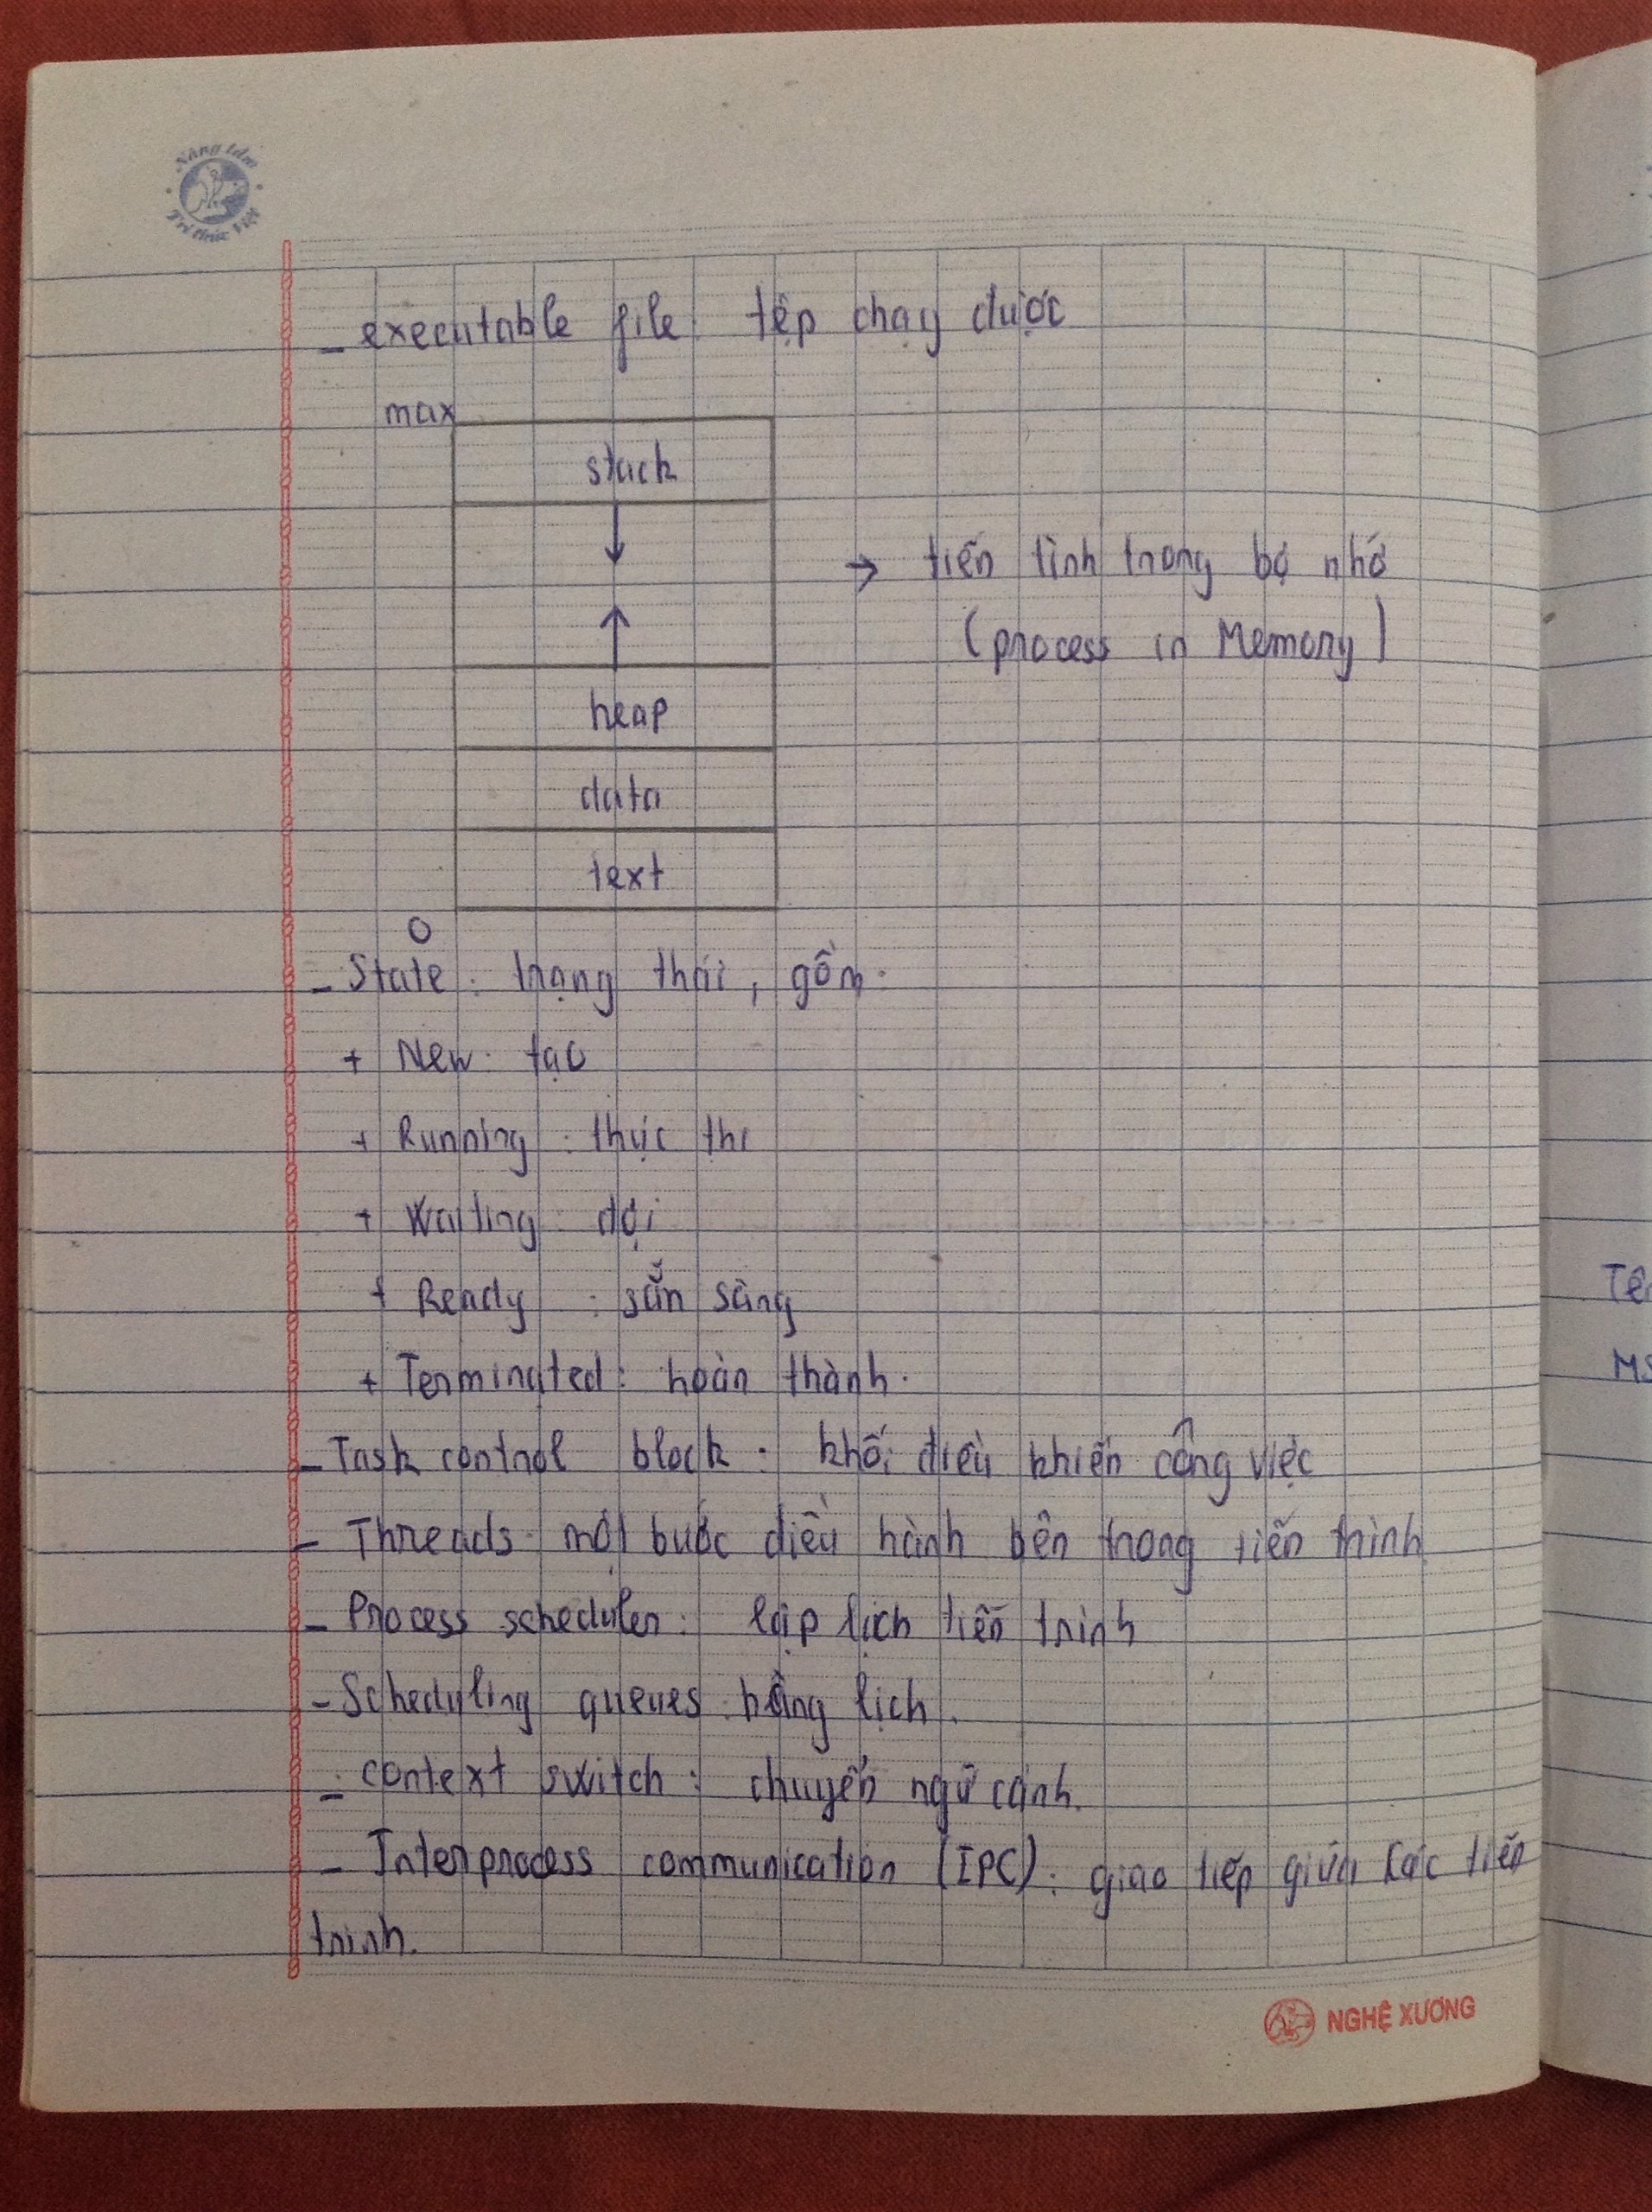 Nâng tầm
Tri thức Việt
- executable file: tệp chạy được
max
stack
→ tiến tình trong bộ nhớ
(process in Memory)
heap
data
text
0
- State: trạng thái, gồm:
+ New: tạo
+ Running: thực thi
+ Waiting: đợi
+ Ready: sẵn sàng
+ Terminated: hoàn thành.
- Task control block: khối điều khiển công việc
- Threads: một bước điều hành bên trong tiến trình
- Process scheduler: lập lịch tiến trình
- Scheduling queues: hàng lịch.
- context switch: chuyển ngữ cảnh.
- Interprocess communication (IPC): giao tiếp giữa các tiến
trình.
NGHỆ XƯƠNG